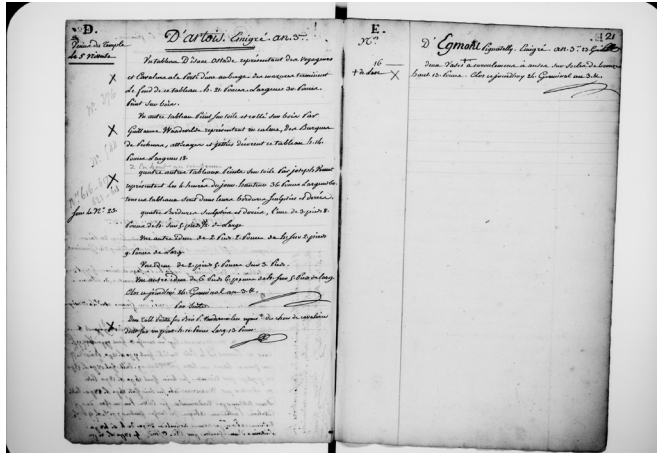 D.
D'artois. Emigré. an. 3.e
Venu du Temple
le 5 Ventose
Un tableau D'isaac ostade représentant des voyageurs
et Cavaliers a la Porte d'une auberge des masures terminent
le fond de ce tableau h. 21 Pouces Largeur 30 Pouces.
Peint sur bois.
Un autre tableau Peint sur toile et collé sur bois Par
Guillaume Vandevelde représentant un calme, des Barques
de Pecheurs, décorent ce tableau h. 16
Pouces Largeur 18
quatre autres tableaux Peints sur toile Par joseph Vernet
représentent les 4 heures du jour. hauteur 36 Pouces Largeur
tous ces tableaux sont dans leurs bordures sculptées et dorées.
sous le N.º 23.
quatre Bordures sculptées et dorées, l'une de 3 pieds 8
Pouces de h. sur 5 pieds de Large
Une autre idem de 2 Pieds 2 Pouces de h. sur 2 pieds
9 Pouces de Larg.
Une idem de 2 pieds 5 Pouces sur 3 Pieds.
Une autre idem de 6 Pieds 6 pouces de h. sur 5 Pieds de larg.
Clos ce jourdhuy 26 Germinal an 3.e
Par suite
Deux tabl. Peints sur Bois P. Vandermeulen des chocs de cavalerie
h. 10 Pouces Larg. 13 Pouces
E.
21
N.º
D' Egmont Pignatelly. Emigré. an. 3.e
16
deux Vases
haut. 13 Pouces. Clos ce jourdhuy 26 Germinal an 3.e